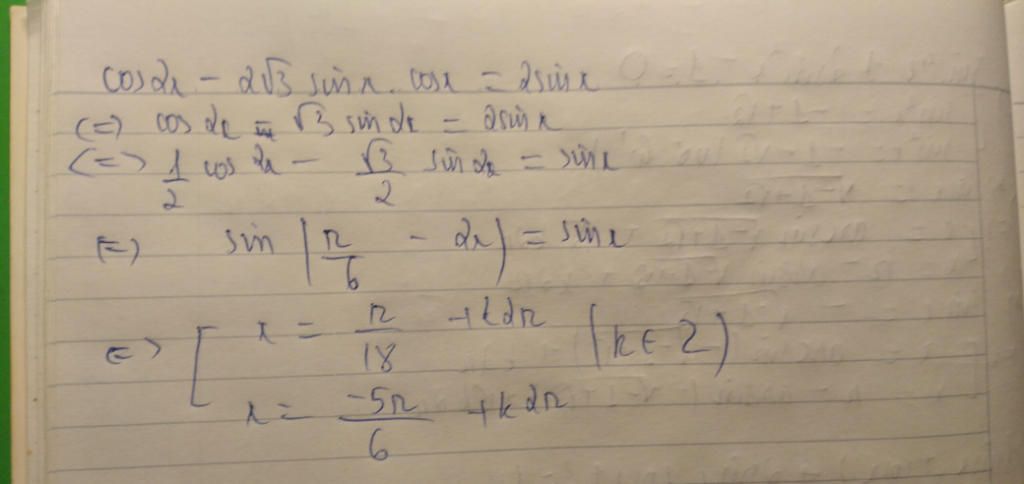 cos2x − 2√3 sinx. cosx = 2sinx
<=> cos 2x − √3 sin2x = 2sinx
<=> 1/2 cos 2x − √3/2 sin2x = sinx
<=> sin (π/6 − 2x) = sinx
<=> [ x = π/18 + k2π (k ∈ Z)
x = −5π/6 + k2π